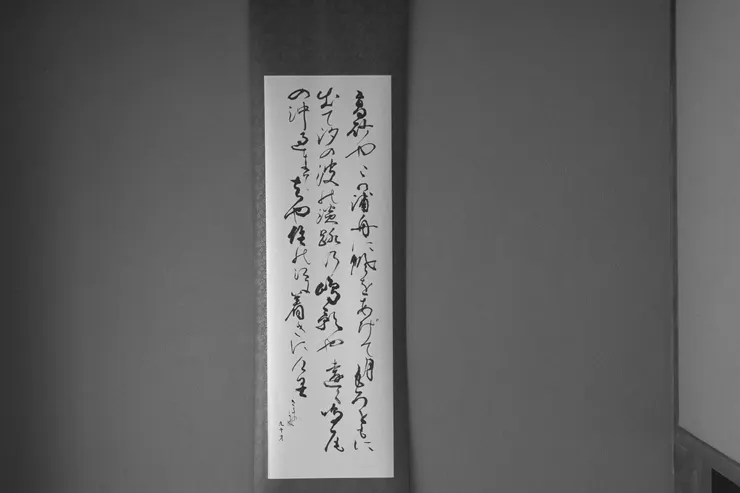 高砂やこの浦舟に帆をあげて月もろともに
出て汐の波の淡路の嶋影や遠く鳴尾
の沖過きてはや住の江に着きにけり
九十才